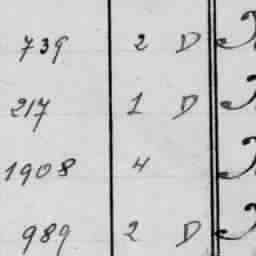 739 2 D
217 1 D
1908 4
989 2 D